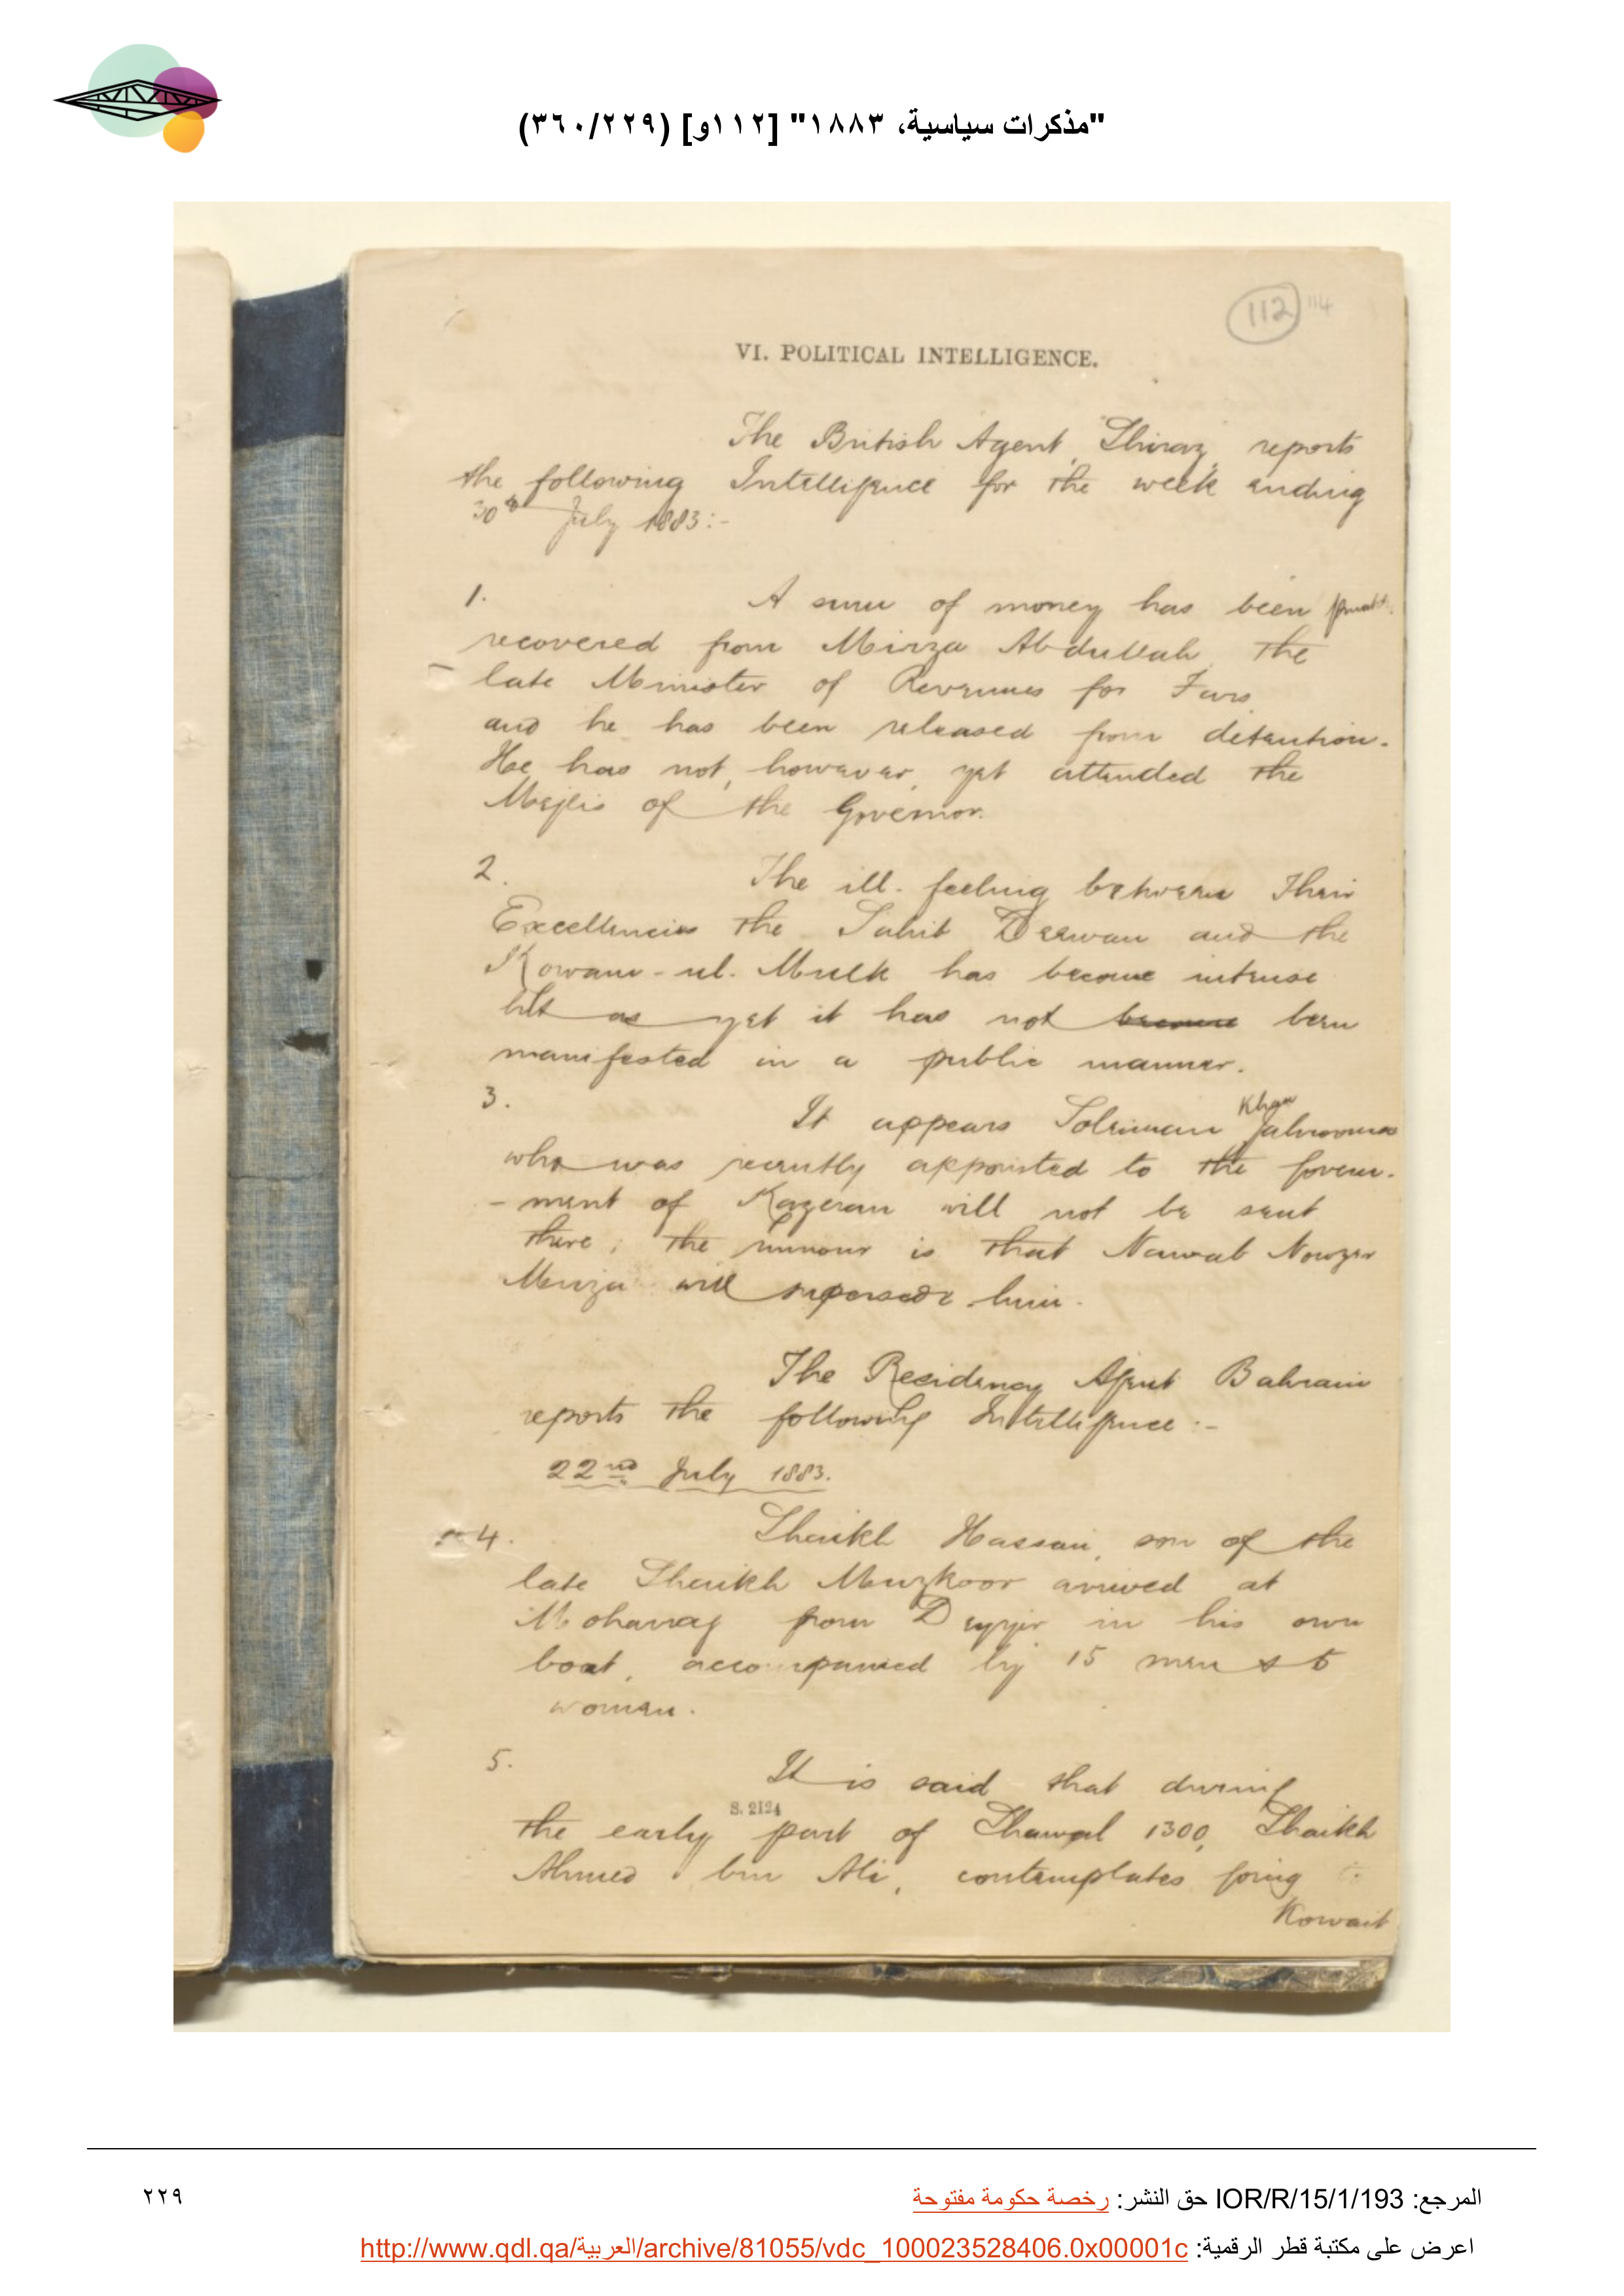 "مذكرات سياسية، ١٨٨٣" [١١٢و] (٣٦٠/٢٢٩)
112 114
VI. POLITICAL INTELLIGENCE.
The British Agent, Shiraz, reports
the following Intelligence for the week ending
30th July 1883:-
1. A sum of money has been
recovered from Mirza Abdullah, the
late Minister of Revenues for Fars
and he has been released from detention.
He has not, however, yet attended the
Mejlis of the Governor.
2. The ill-feeling between Their
Excellencies the Sahib Deewan and the
Kowam-ul-Mulk has become intense
but as yet it has not become been
manifested in a public manner.
3. It appears Soleiman Khan
who was recently appointed to the Govern-
-ment of Kazeran will not be sent
there; the rumour is that Nawab Nowzer
Mirza will supersede him.
The Residency Agent Bahrain
reports the following Intelligence:-
22nd July 1883.
4. Shaikh Hassan, son of the
late Shaikh Muzkoor arrived at
Moharag from Deyyir in his own
boat, accompanied by 15 men & 5
women.
5. It is said that during
the early part of Shawal 1300, Shaikh
S. 2124
Ahmed bin Ali, contemplates going to
Kowait
المرجع: IOR/R/15/1/193 حق النشر: رخصة حكومة مفتوحة
٢٢٩
اعرض على مكتبة قطر الرقمية: http://www.qdl.qa/العربية/archive/81055/vdc_100023528406.0x00001c